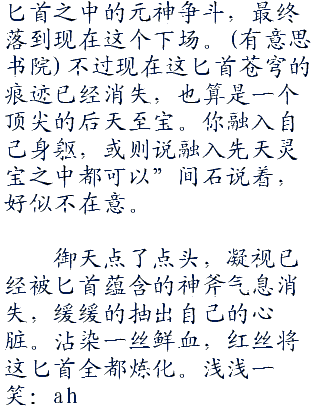 匕首之中的元神争斗，最终
落到现在这个下场。(有意思
书院)不过现在这匕首苍穹的
痕迹已经消失，也算是一个
顶尖的后天至宝。你融入自
己身躯，或则说融入先天灵
宝之中都可以”间石说着，
好似不在意。
御天点了点头，凝视已
经被匕首蕴含的神斧气息消
失，缓缓的抽出自己的心
脏。沾染一丝鲜血，红丝将
这匕首全都炼化。浅浅一
笑：ah